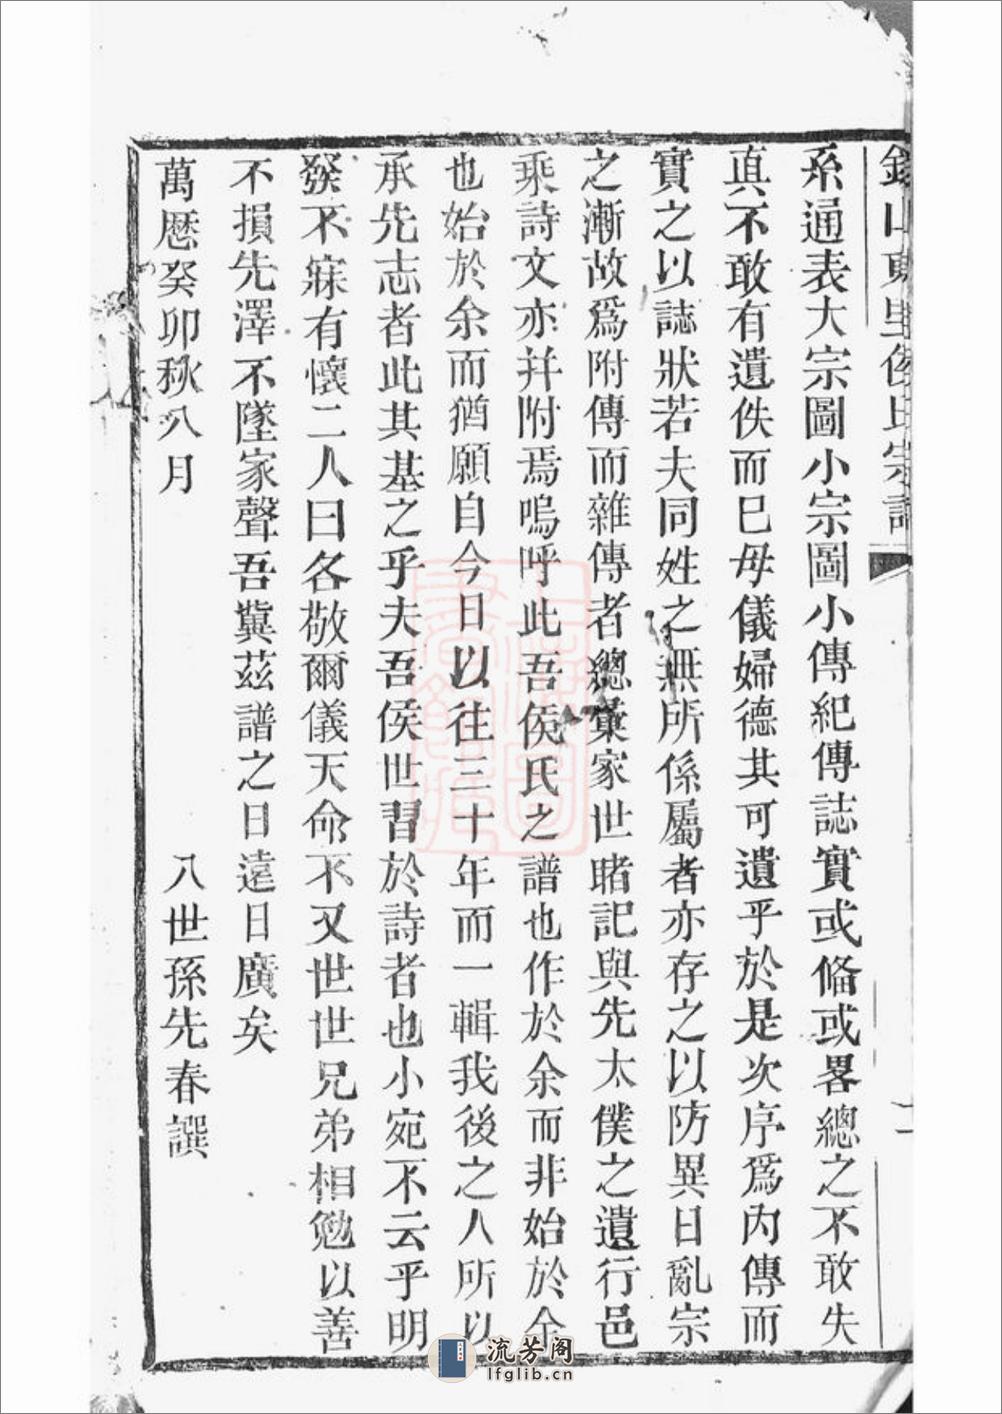 山東里侯氏宗譜
系通表大宗圖小宗圖小傳紀傳誌實或偹或畧總之不敢失
眞不敢有遺佚而巳母儀婦德其可遺乎於是次序爲內傳而
實之以誌狀若夫同姓之無所係屬者亦存之以防異日亂宗
之漸故爲附傳而雜傳者總彙家世睹記與先太僕之遺行邑
乘詩文亦幷附焉嗚呼此吾侯氏之譜也作於余而非始於余
也始於余而猶願自今日以往三十年而一輯我後之人所以
承先志者此其基之乎夫吾侯世習於詩者也小宛不云乎明
發不寐有懷二人曰各敬爾儀天命不又世世兄弟相勉以善
不損先澤不墜家聲吾冀茲譜之日遠日廣矣
萬厯癸卯秋八月
八世孫先春譔
流芳阁
lfglib.cn